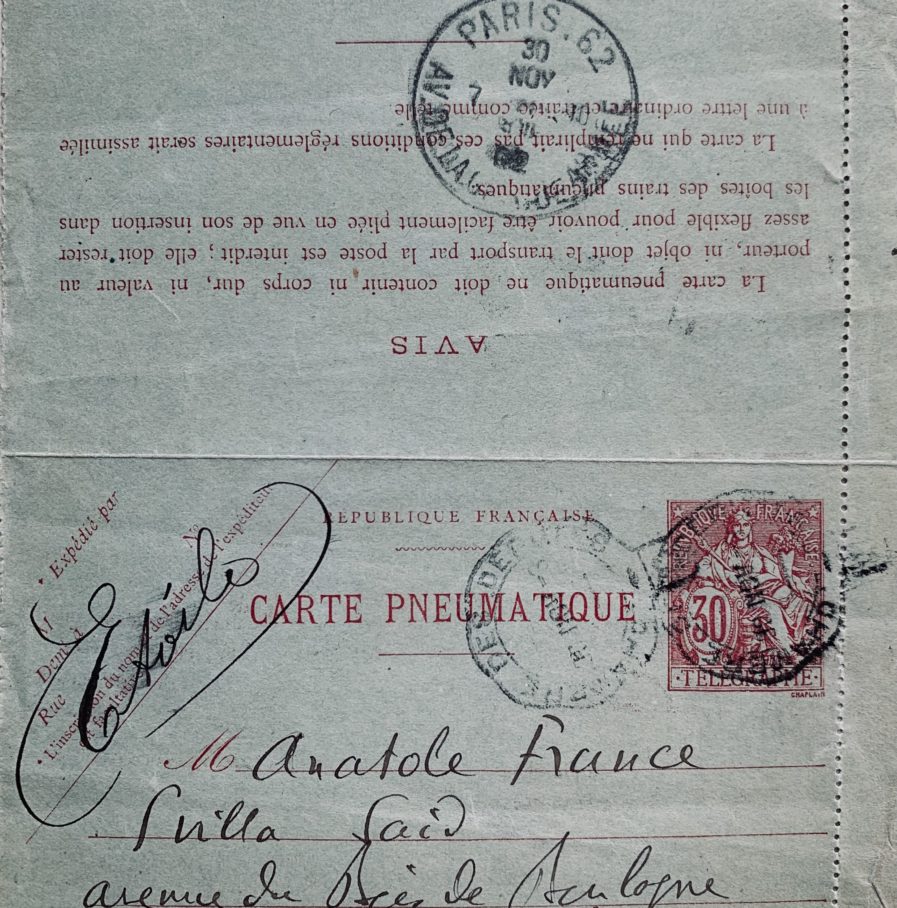 PARIS. 62
30
NOV
AV. DE LA GDE ARMÉE
à une lettre ordinaire et traitée comme telle.
La carte qui ne remplirait pas ces conditions réglementaires serait assimilée
les boîtes des trains pneumatiques.
assez flexible pour pouvoir être facilement pliée en vue de son insertion dans
porteur, ni objet dont le transport par la poste est interdit ; elle doit rester
La carte pneumatique ne doit contenir ni corps dur, ni valeur au
AVIS
Expédié par
M
Demt à
Rue
N°
L'inscription du nom et de l'adresse de l'expéditeur
est facultative
Etoile
REPUBLIQUE FRANÇAISE
CARTE PNEUMATIQUE
REPUBLIQUE FRANÇAISE
30
TELEGRAPHE
CHAPLAIN
M Anatole France
Villa Saïd
avenue du Bois de Boulogne